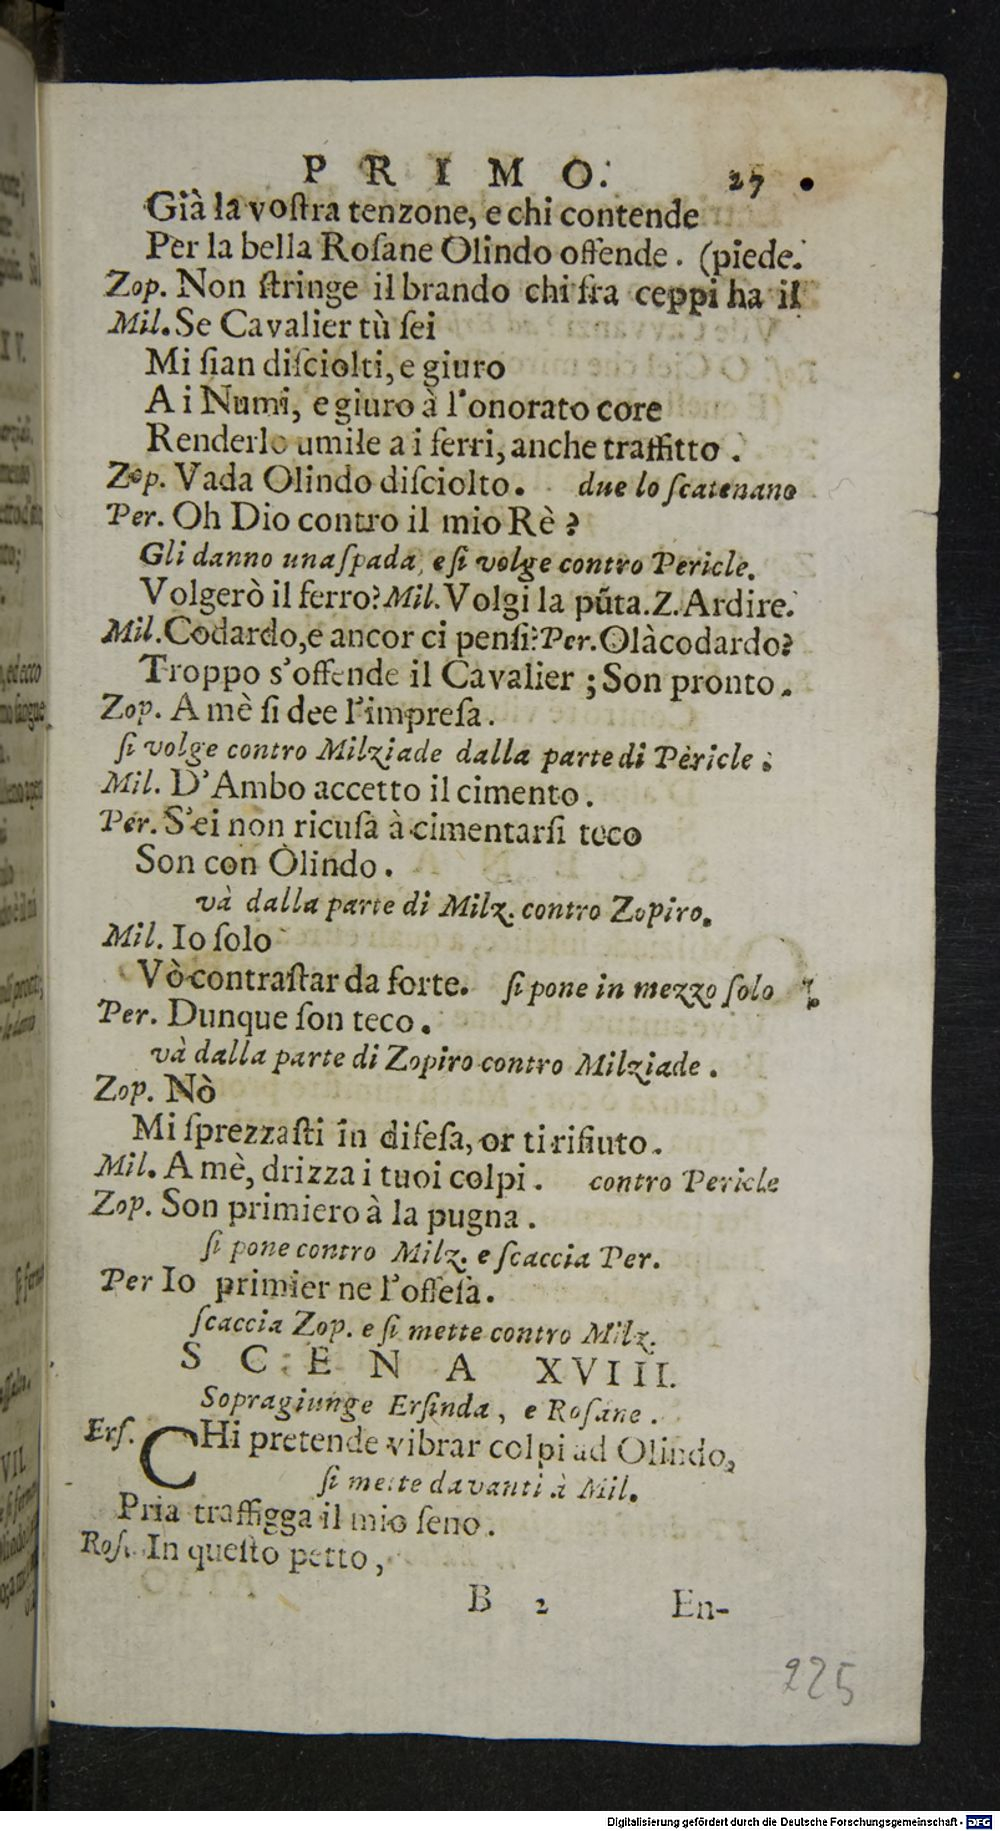 PRIMO. 27
Già la voſtra tenzone, e chi contende
Per la bella Roſane Olindo offende. (piede.
Zop. Non ſtringe il brando chi fra ceppi ha il
Mil. Se Cavalier tù ſei
Mi ſian diſciolti, e giuro
A i Numi, e giuro à l'onorato core
Renderlo umile a i ferri, anche traffitto.
Zop. Vada Olindo diſciolto. due lo ſcatenano
Per. Oh Dio contro il mio Rè?
Gli danno una ſpada, e ſi volge contro Pericle.
Volgerò il ferro? Mil. Volgi la pũta. Z. Ardire.
Mil. Codardo, e ancor ci penſi? Per. Olà codardo?
Troppo s'offende il Cavalier; Son pronto.
Zop. A mè ſi dee l'impreſa.
ſi volge contro Milziade dalla parte di Pericle;
Mil. D'Ambo accetto il cimento.
Per. S'ei non ricuſa à cimentarſi teco
Son con Olindo.
và dalla parte di Milz. contro Zopiro.
Mil. Io ſolo
Vò contraſtar da forte. ſi pone in mezzo ſolo
Per. Dunque ſon teco.
và dalla parte di Zopiro contro Milziade.
Zop. Nò
Mi ſprezzaſti in difeſa, or ti rifiuto.
Mil. A mè, drizza i tuoi colpi. contro Pericle
Zop. Son primiero à la pugna.
ſi pone contro Milz. e ſcaccia Per.
Per Io primier ne l'offeſa.
ſcaccia Zop. e ſi mette contro Milz.
SCENA XVIII.
Sopragiunge Erſinda, e Roſane.
Erſ. CHi pretende vibrar colpi ad Olindo,
ſi mette davanti à Mil.
Pria traffigga il mio ſeno.
Roſ. In queſto petto,
B 2 En-
225
Digitalisierung gefördert durch die Deutsche Forschungsgemeinschaft - DFG